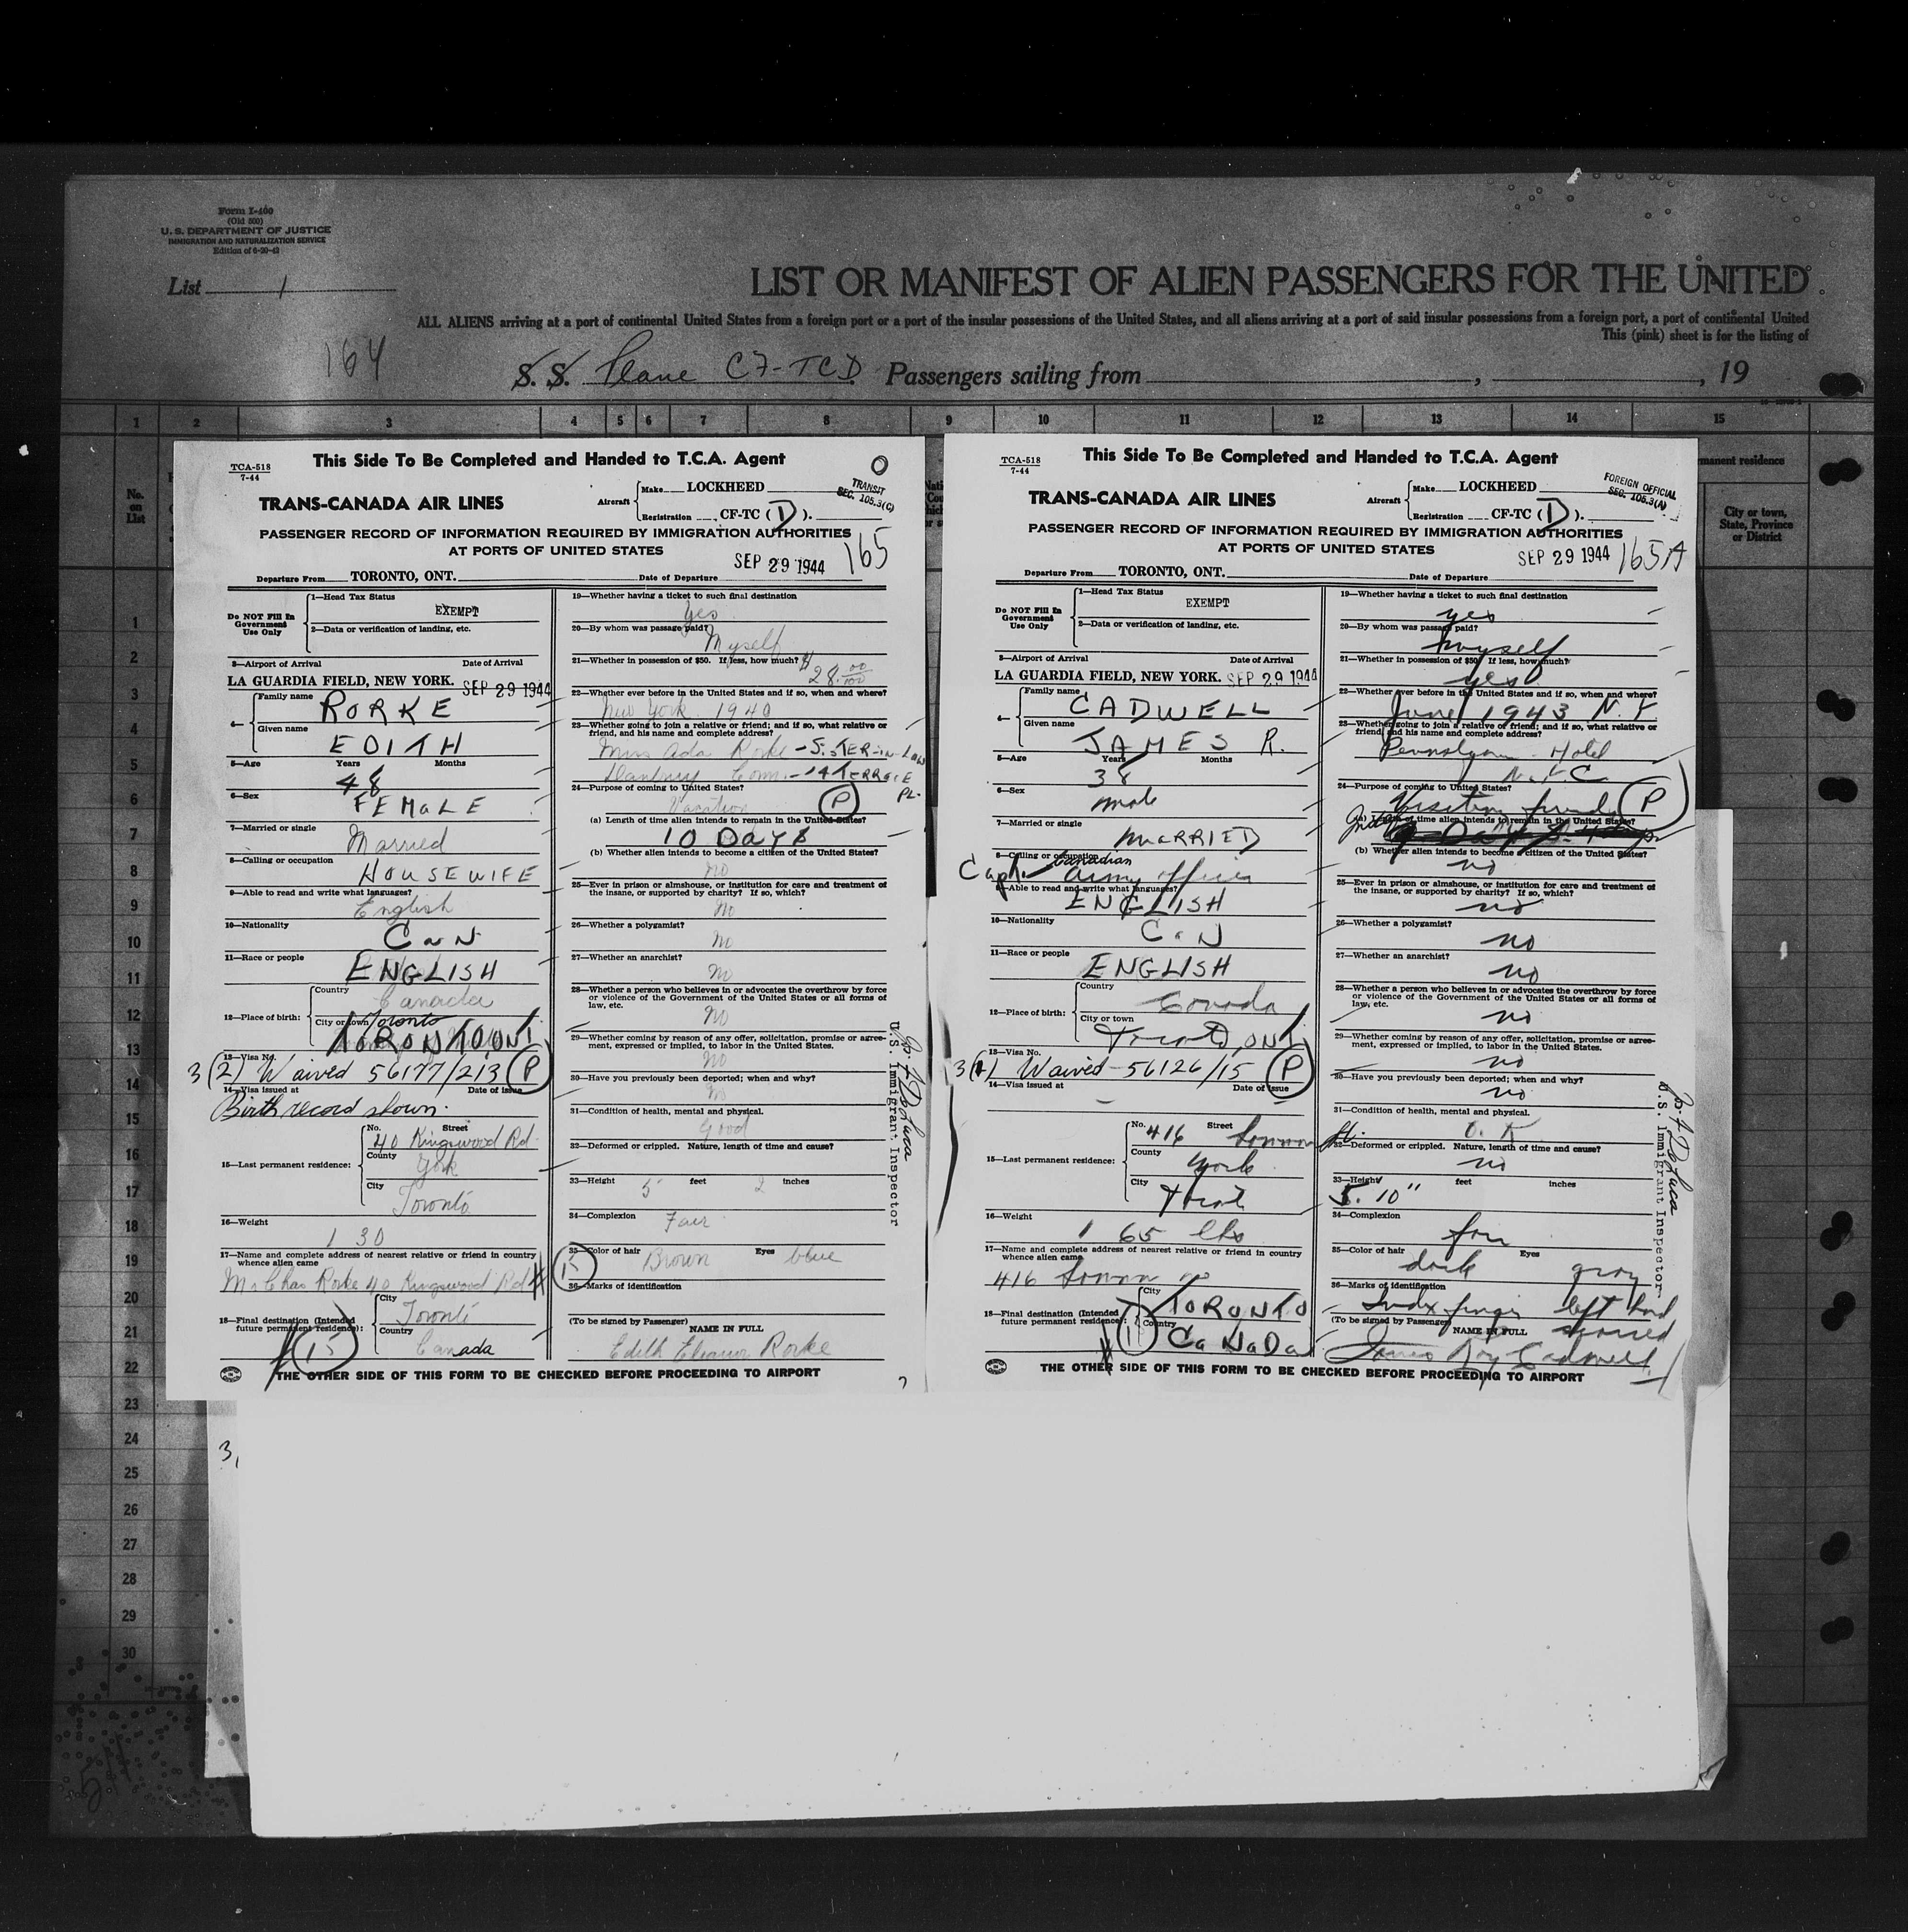 Form I-400
(Old 500)
U. S. DEPARTMENT OF JUSTICE
IMMIGRATION AND NATURALIZATION SERVICE
Edition of 6-20-42
List 1
LIST OR MANIFEST OF ALIEN PASSENGERS FOR THE UNITED
ALL ALIENS arriving at a port of continental United States from a foreign port or a port of the insular possessions of the United States, and all aliens arriving at a port of said insular possessions from a foreign port, a port of continental United
This (pink) sheet is for the listing of
164
S. S. Plane CF-TCD Passengers sailing from , , 19
1 2 3 4 5 6 7 8 9 10 11 12 13 14 15
No. on List
manent residence
City or town, State, Province or District
This Side To Be Completed and Handed to T.C.A. Agent
TCA-518
7-44
TRANSIT
SEC. 105.3(C)
TRANS-CANADA AIR LINES
Aircraft Make LOCKHEED
Registration CF-TC (D).
PASSENGER RECORD OF INFORMATION REQUIRED BY IMMIGRATION AUTHORITIES
AT PORTS OF UNITED STATES
SEP 29 1944 165
Departure From TORONTO, ONT. Date of Departure
Do NOT Fill In Government Use Only
1—Head Tax Status
EXEMPT
2—Data or verification of landing, etc.
3—Airport of Arrival Date of Arrival
LA GUARDIA FIELD, NEW YORK. SEP 29 1944
4— Family name
RORKE
Given name
EDITH
5—Age Years Months
48
6—Sex
FEMALE
7—Married or single
Married
8—Calling or occupation
HOUSEWIFE
9—Able to read and write what languages?
English
10—Nationality
CaN
11—Race or people
ENGLISH
12—Place of birth: Country
Canada
City or town Toronto
TORONTO, ONT
13—Visa No.
3(2) Waived 56177/213 P
14—Visa issued at Date of issue
Birth record shown.
15—Last permanent residence:
No. Street
40 Kingswood Rd.
County
York
City
Toronto
16—Weight
130
17—Name and complete address of nearest relative or friend in country whence alien came
Mr Chas Rorke 40 Kingswood Rd
18—Final destination (Intended future permanent residence):
City
Toronto
Country
Canada
15
19—Whether having a ticket to such final destination
Yes
20—By whom was passage paid?
Myself
21—Whether in possession of $50. If less, how much?
$28.00/100
22—Whether ever before in the United States and if so, when and where?
New York 1940
23—Whether going to join a relative or friend; and if so, what relative or friend, and his name and complete address?
Miss Ada Rorke - SiSTER-iN-Law
Danbury Conn. - 14 TERRACE PL.
24—Purpose of coming to United States?
Vacation P
(a) Length of time alien intends to remain in the United States?
10 DayS
(b) Whether alien intends to become a citizen of the United States?
No
25—Ever in prison or almshouse, or institution for care and treatment of the insane, or supported by charity? If so, which?
No
26—Whether a polygamist?
No
27—Whether an anarchist?
No
28—Whether a person who believes in or advocates the overthrow by force or violence of the Government of the United States or all forms of law, etc.
No
29—Whether coming by reason of any offer, solicitation, promise or agreement, expressed or implied, to labor in the United States.
No
30—Have you previously been deported; when and why?
No
31—Condition of health, mental and physical.
Good
32—Deformed or crippled. Nature, length of time and cause?
33—Height 5 feet 2 inches
34—Complexion Fair
35—Color of hair Brown Eyes blue
15
36—Marks of identification
(To be signed by Passenger) NAME IN FULL
Edith Eleanor Rorke
U.S. Immigrant Inspector
THE OTHER SIDE OF THIS FORM TO BE CHECKED BEFORE PROCEEDING TO AIRPORT
This Side To Be Completed and Handed to T.C.A. Agent
TCA-518
7-44
FOREIGN OFFICIAL
SEC. 105.3(A)
TRANS-CANADA AIR LINES
Aircraft Make LOCKHEED
Registration CF-TC (D).
PASSENGER RECORD OF INFORMATION REQUIRED BY IMMIGRATION AUTHORITIES
AT PORTS OF UNITED STATES
SEP 29 1944 165A
Departure From TORONTO, ONT. Date of Departure
Do NOT Fill In Government Use Only
1—Head Tax Status
EXEMPT
2—Data or verification of landing, etc.
3—Airport of Arrival Date of Arrival
LA GUARDIA FIELD, NEW YORK. SEP 29 1944
4— Family name
CADWELL
Given name
JAMES R.
5—Age Years Months
38
6—Sex
male
7—Married or single
MARRIED
8—Calling or occupation
Capt. Canadian army officer
9—Able to read and write what languages?
ENGLISH
10—Nationality
CaN
11—Race or people
ENGLISH
12—Place of birth: Country
Canada
City or town
ONT
13—Visa No.
Waived - 56126/15 P
14—Visa issued at Date of issue
15—Last permanent residence:
No. 416 Street
County
York
City
16—Weight
165 lbs
17—Name and complete address of nearest relative or friend in country whence alien came
416
18—Final destination (Intended future permanent residence):
City
TORONTO
Country
CaNaDa
19—Whether having a ticket to such final destination
yes
20—By whom was passage paid?
myself
21—Whether in possession of $50. If less, how much?
yes
22—Whether ever before in the United States and if so, when and where?
June 1943 N.Y.
23—Whether going to join a relative or friend; and if so, what relative or friend, and his name and complete address?
Hotel
N.Y.C
24—Purpose of coming to United States?
Visiting friends P
(a) Length of time alien intends to remain in the United States?
(b) Whether alien intends to become a citizen of the United States?
no
25—Ever in prison or almshouse, or institution for care and treatment of the insane, or supported by charity? If so, which?
no
26—Whether a polygamist?
no
27—Whether an anarchist?
no
28—Whether a person who believes in or advocates the overthrow by force or violence of the Government of the United States or all forms of law, etc.
no
29—Whether coming by reason of any offer, solicitation, promise or agreement, expressed or implied, to labor in the United States.
no
30—Have you previously been deported; when and why?
no
31—Condition of health, mental and physical.
O. K
32—Deformed or crippled. Nature, length of time and cause?
no
33—Height feet inches
5. 10"
34—Complexion
fair
35—Color of hair Eyes
dark gray
36—Marks of identification
Index finger left hand
(To be signed by Passenger) NAME IN FULL
James Roy Cadwell
U.S. Immigrant Inspector
THE OTHER SIDE OF THIS FORM TO BE CHECKED BEFORE PROCEEDING TO AIRPORT
1
2
3
4
5
6
7
8
9
10
11
12
13
14
15
16
17
18
19
20
21
22
23
24
25
26
27
28
29
30
3,